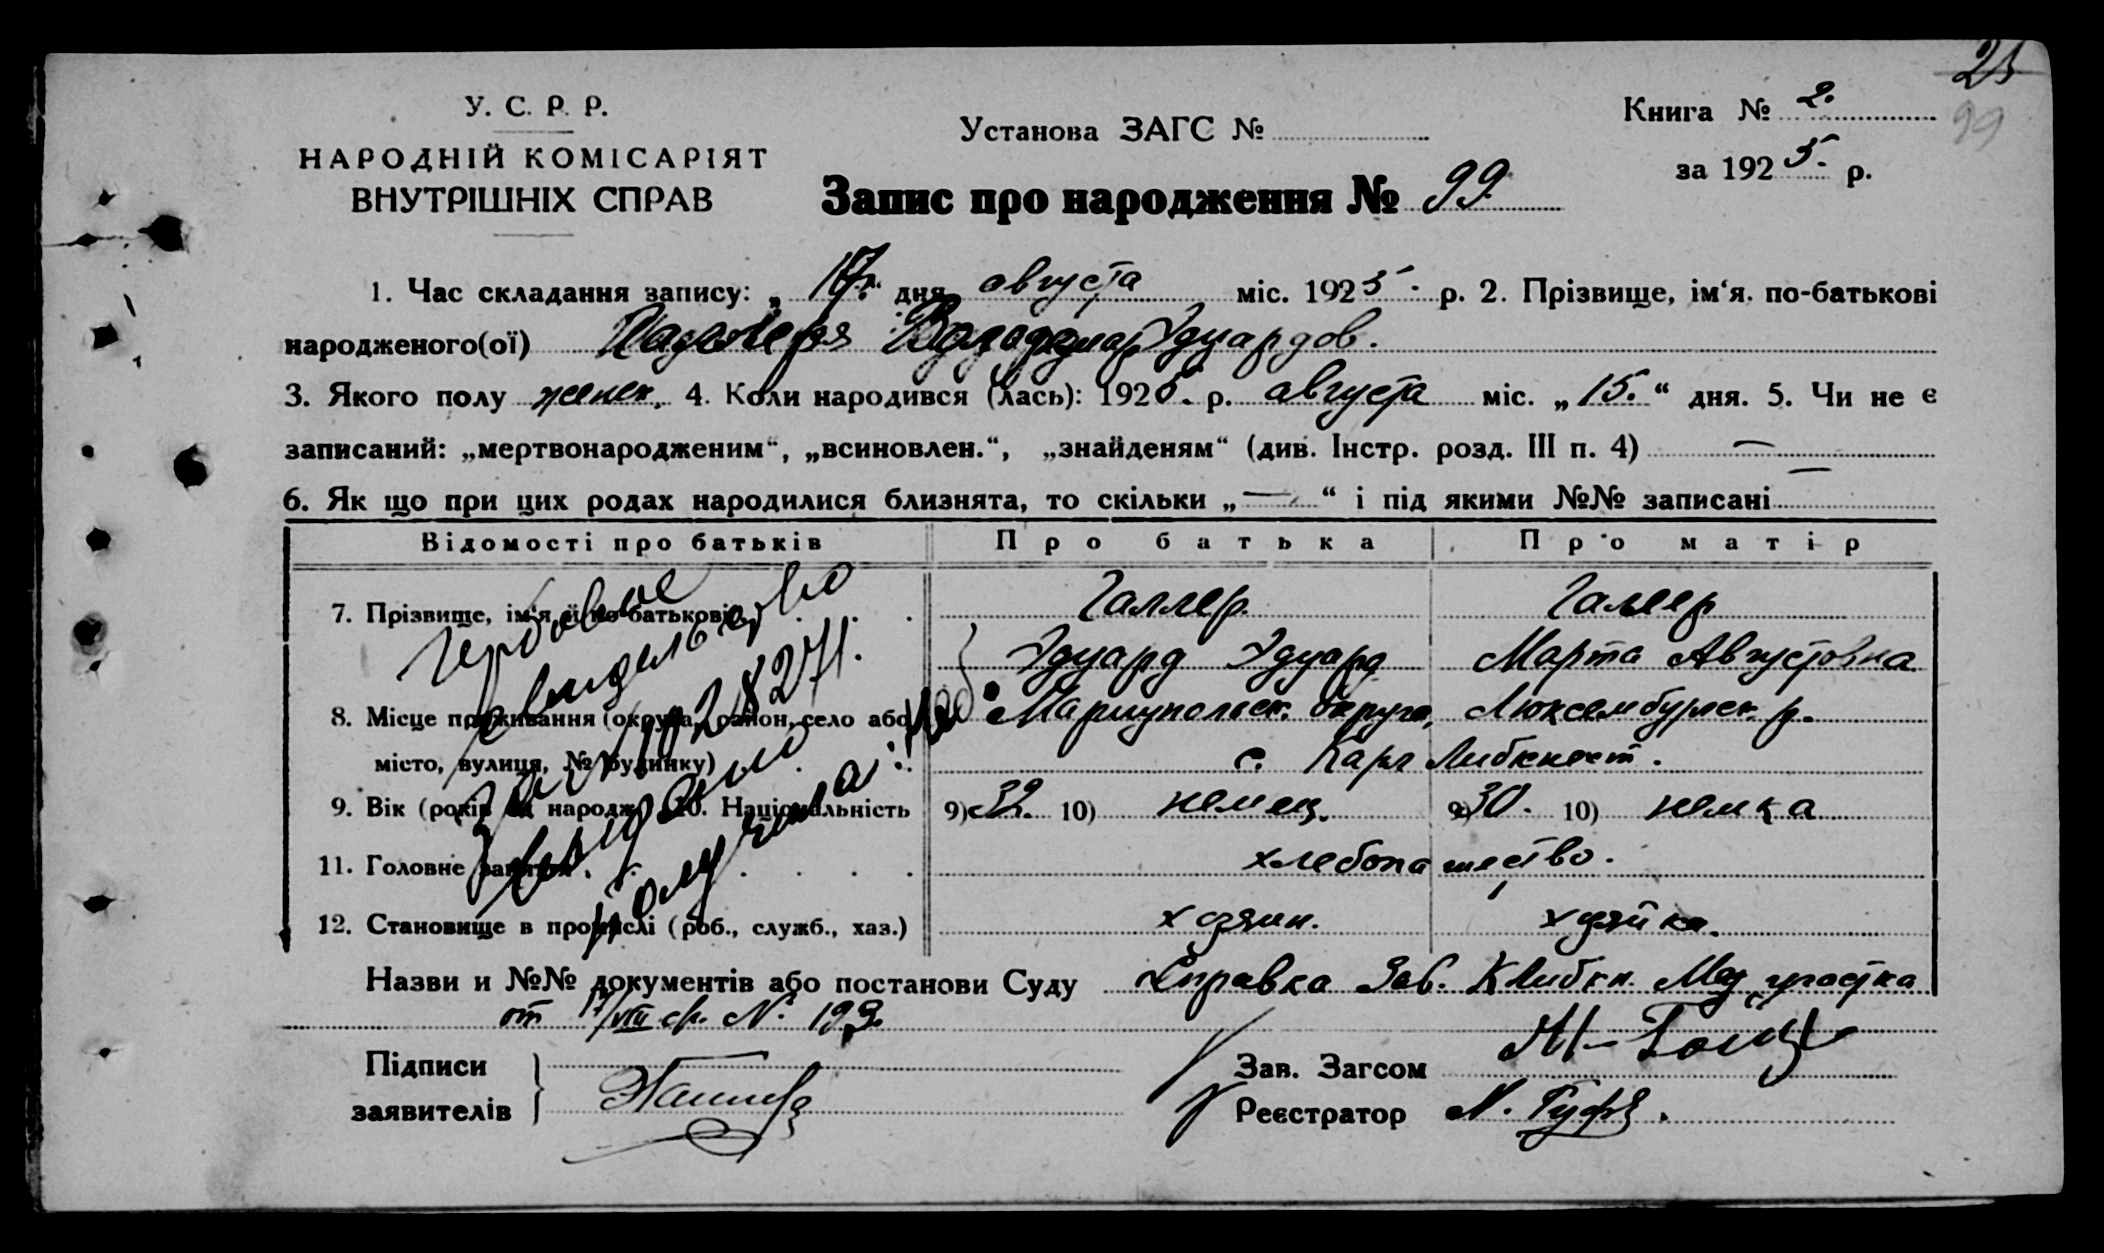 25
99
У. С. Р. Р.
НАРОДНІЙ КОМІСАРІЯТ
ВНУТРІШНІХ СПРАВ
Установа ЗАГС №
Книга № 2.
за 1925. р.
Запис про народження № 99
1. Час складання запису: „17“ дня августа міс. 1925. р. 2. Прізвище, ім'я, по-батькові
народженого(ої) Эдуардов.
3. Якого полу женск. 4. Коли народився (лась): 1925. р. августа міс. „15.“ дня. 5. Чи не є
записаний: „мертвонародженим“, „всиновлен.“, „знайденям“ (див. Інстр. розд. III п. 4) —
6. Як що при цих родах народилися близнята, то скільки „—“ і під якими №№ записані —
Відомості про батьків Про батька Про матір
7. Прізвище, ім'я й по-батькові Галлер Галлер
Эдуард Эдуард Марта Августовна
8. Місце проживання (округа, район, село або Мариупольск. округа, Люксембургск. р.
місто, вулиця, № будинку) с. Карл Либкнехт.
9. Вік (років від народж.) 10. Національність 9) 39. 10) немец. 9) 30. 10) немка
11. Головне заняття хлебопашество.
12. Становище в промислі (роб., служб., хаз.) хозяин. хозяйка.
Гербовое
свидетельство
за № 218271.
выдано
Получила:
Назви и №№ документів або постанови Суду Справка Зав. К Либкн. Мед участка
от 17/VIII с/г. № 199.
Підписи
заявителів
Зав. Загсом
Реєстратор